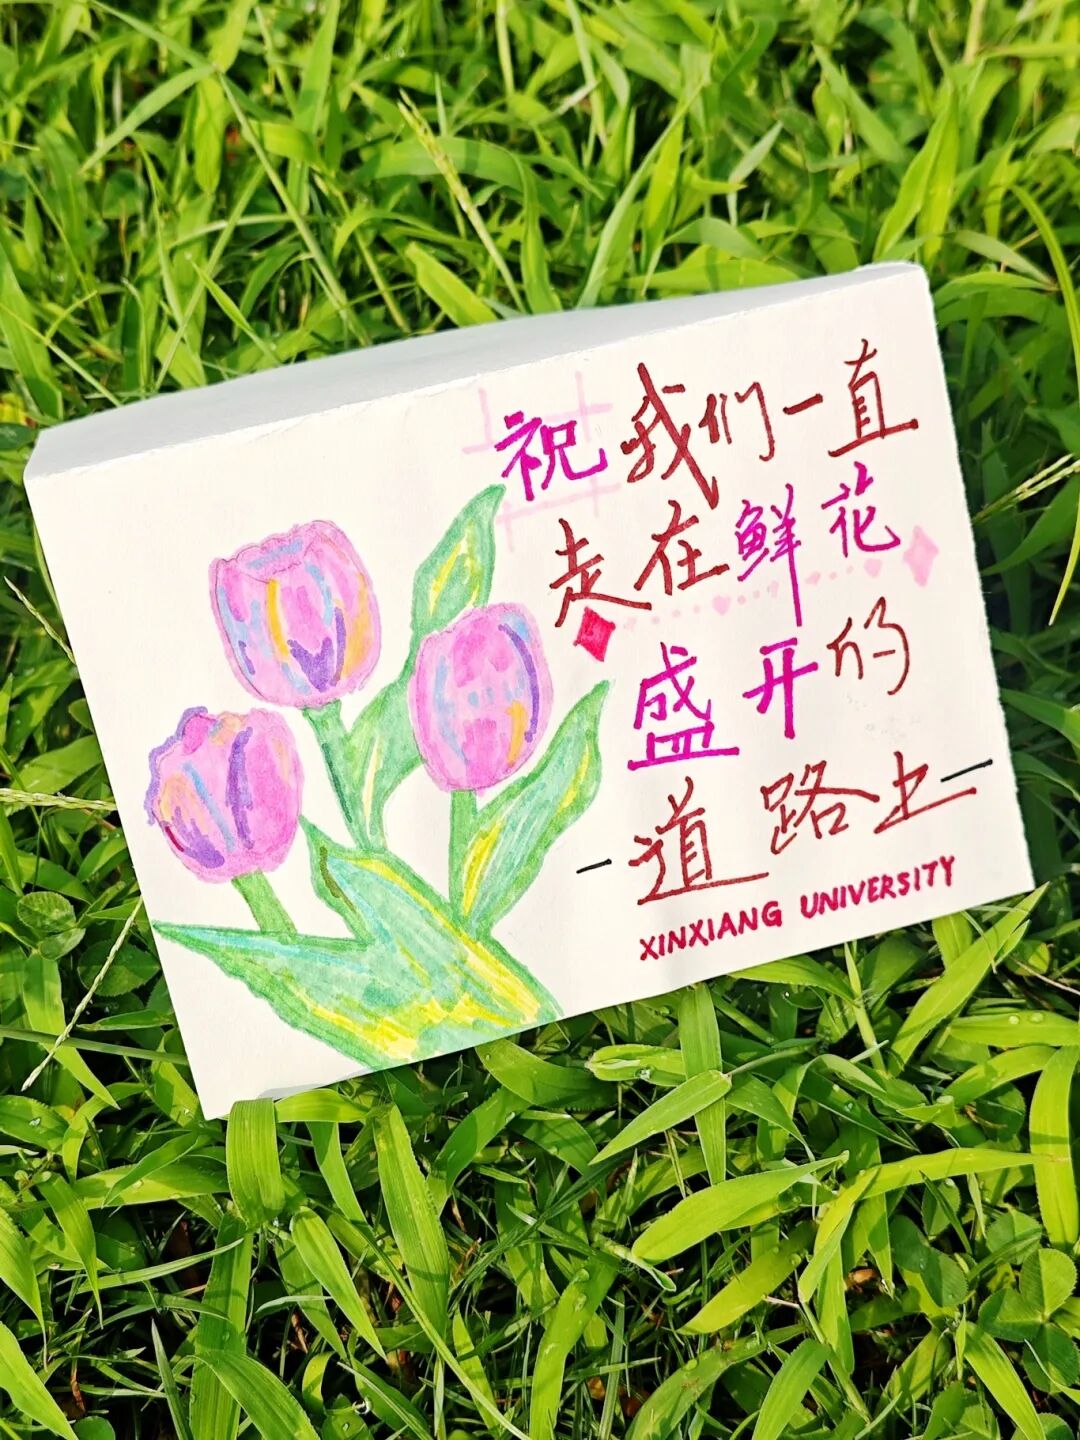 祝我们一直
走在鲜花
盛开的
-道路上-
XINXIANG UNIVERSITY